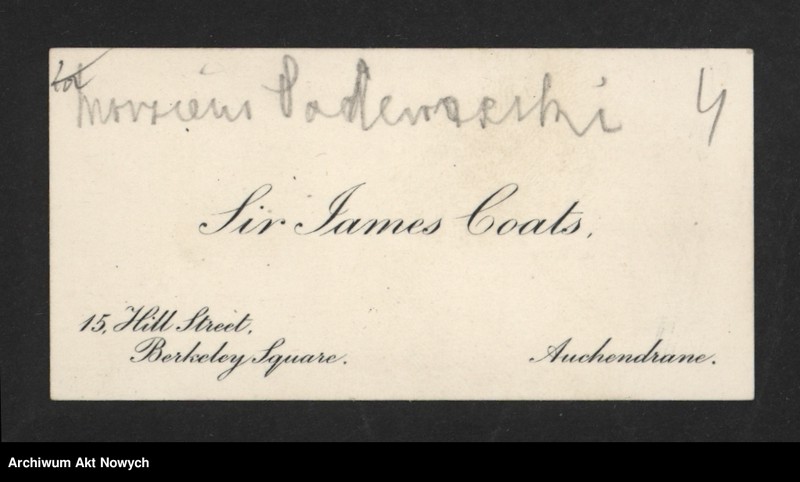 for
Monsieur Paderewski 4
Sir James Coats,
15, Hill Street,
Berkeley Square.
Auchendrane.
Archiwum Akt Nowych